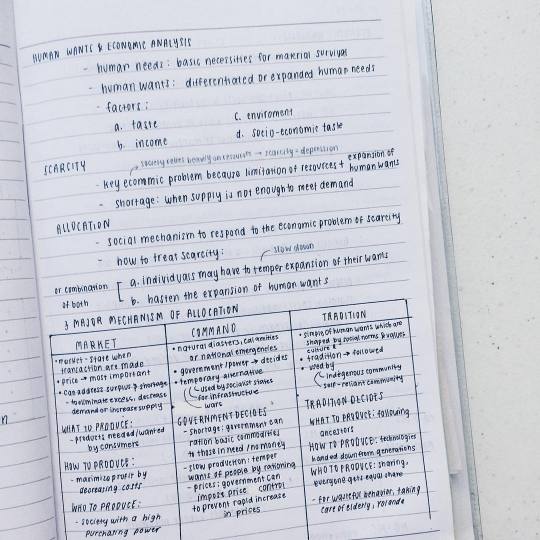 HUMAN WANTS & ECONOMIC ANALYSIS
- human needs: basic necessities for material survival
- human wants: differentiated or expanded human needs
- factors:
a. taste
c. enviroment
b. income
d. socio-economic taste
society relies heavily on resources → scarcity = depression
SCARCITY
- key economic problem because limitation of resources + expansion of human wants
- shortage: when supply is not enough to meet demand
ALLOCATION
- social mechanism to respond to the economic problem of scarcity
- how to treat scarcity:
slow down
or combination of both
a. individuals may have to temper expansion of their wants
b. hasten the expansion of human wants
3 MAJOR MECHANISM OF ALLOCATION
MARKET
• market - state when
transaction are made
• price → most important
• can address surplus & shortage
- to eliminate excess, decrease
demand or increase supply
WHAT TO PRODUCE:
- products needed/wanted
by consumers
HOW TO PRODUCE:
- maximize profit by
decreasing costs
WHO TO PRODUCE:
- society with a high
purchasing power
COMMAND
• natural diasters, calamities
or national emergencies
• government/power → decides
• temporary alternative
used by socialist states
for infrastructure
wars
GOVERNMENT DECIDES
- shortage: government can
ration basic commodities
to those in need / no money
- slow production: temper
wants of people by rationing
- prices: government can
impose price control
to prevent rapid increase
in prices
TRADITION
• simple of human wants which are
shaped by social norms & values
culture
• tradition → followed
• used by
indigenous community
self-reliant community
TRADITION DECIDES
WHAT TO PRODUCE: following
ancestors
HOW TO PRODUCE: technologies
handed down from generations
WHO TO PRODUCE: sharing,
everyone gets equal share
- for wasteful behavior, taking
care of elderly,